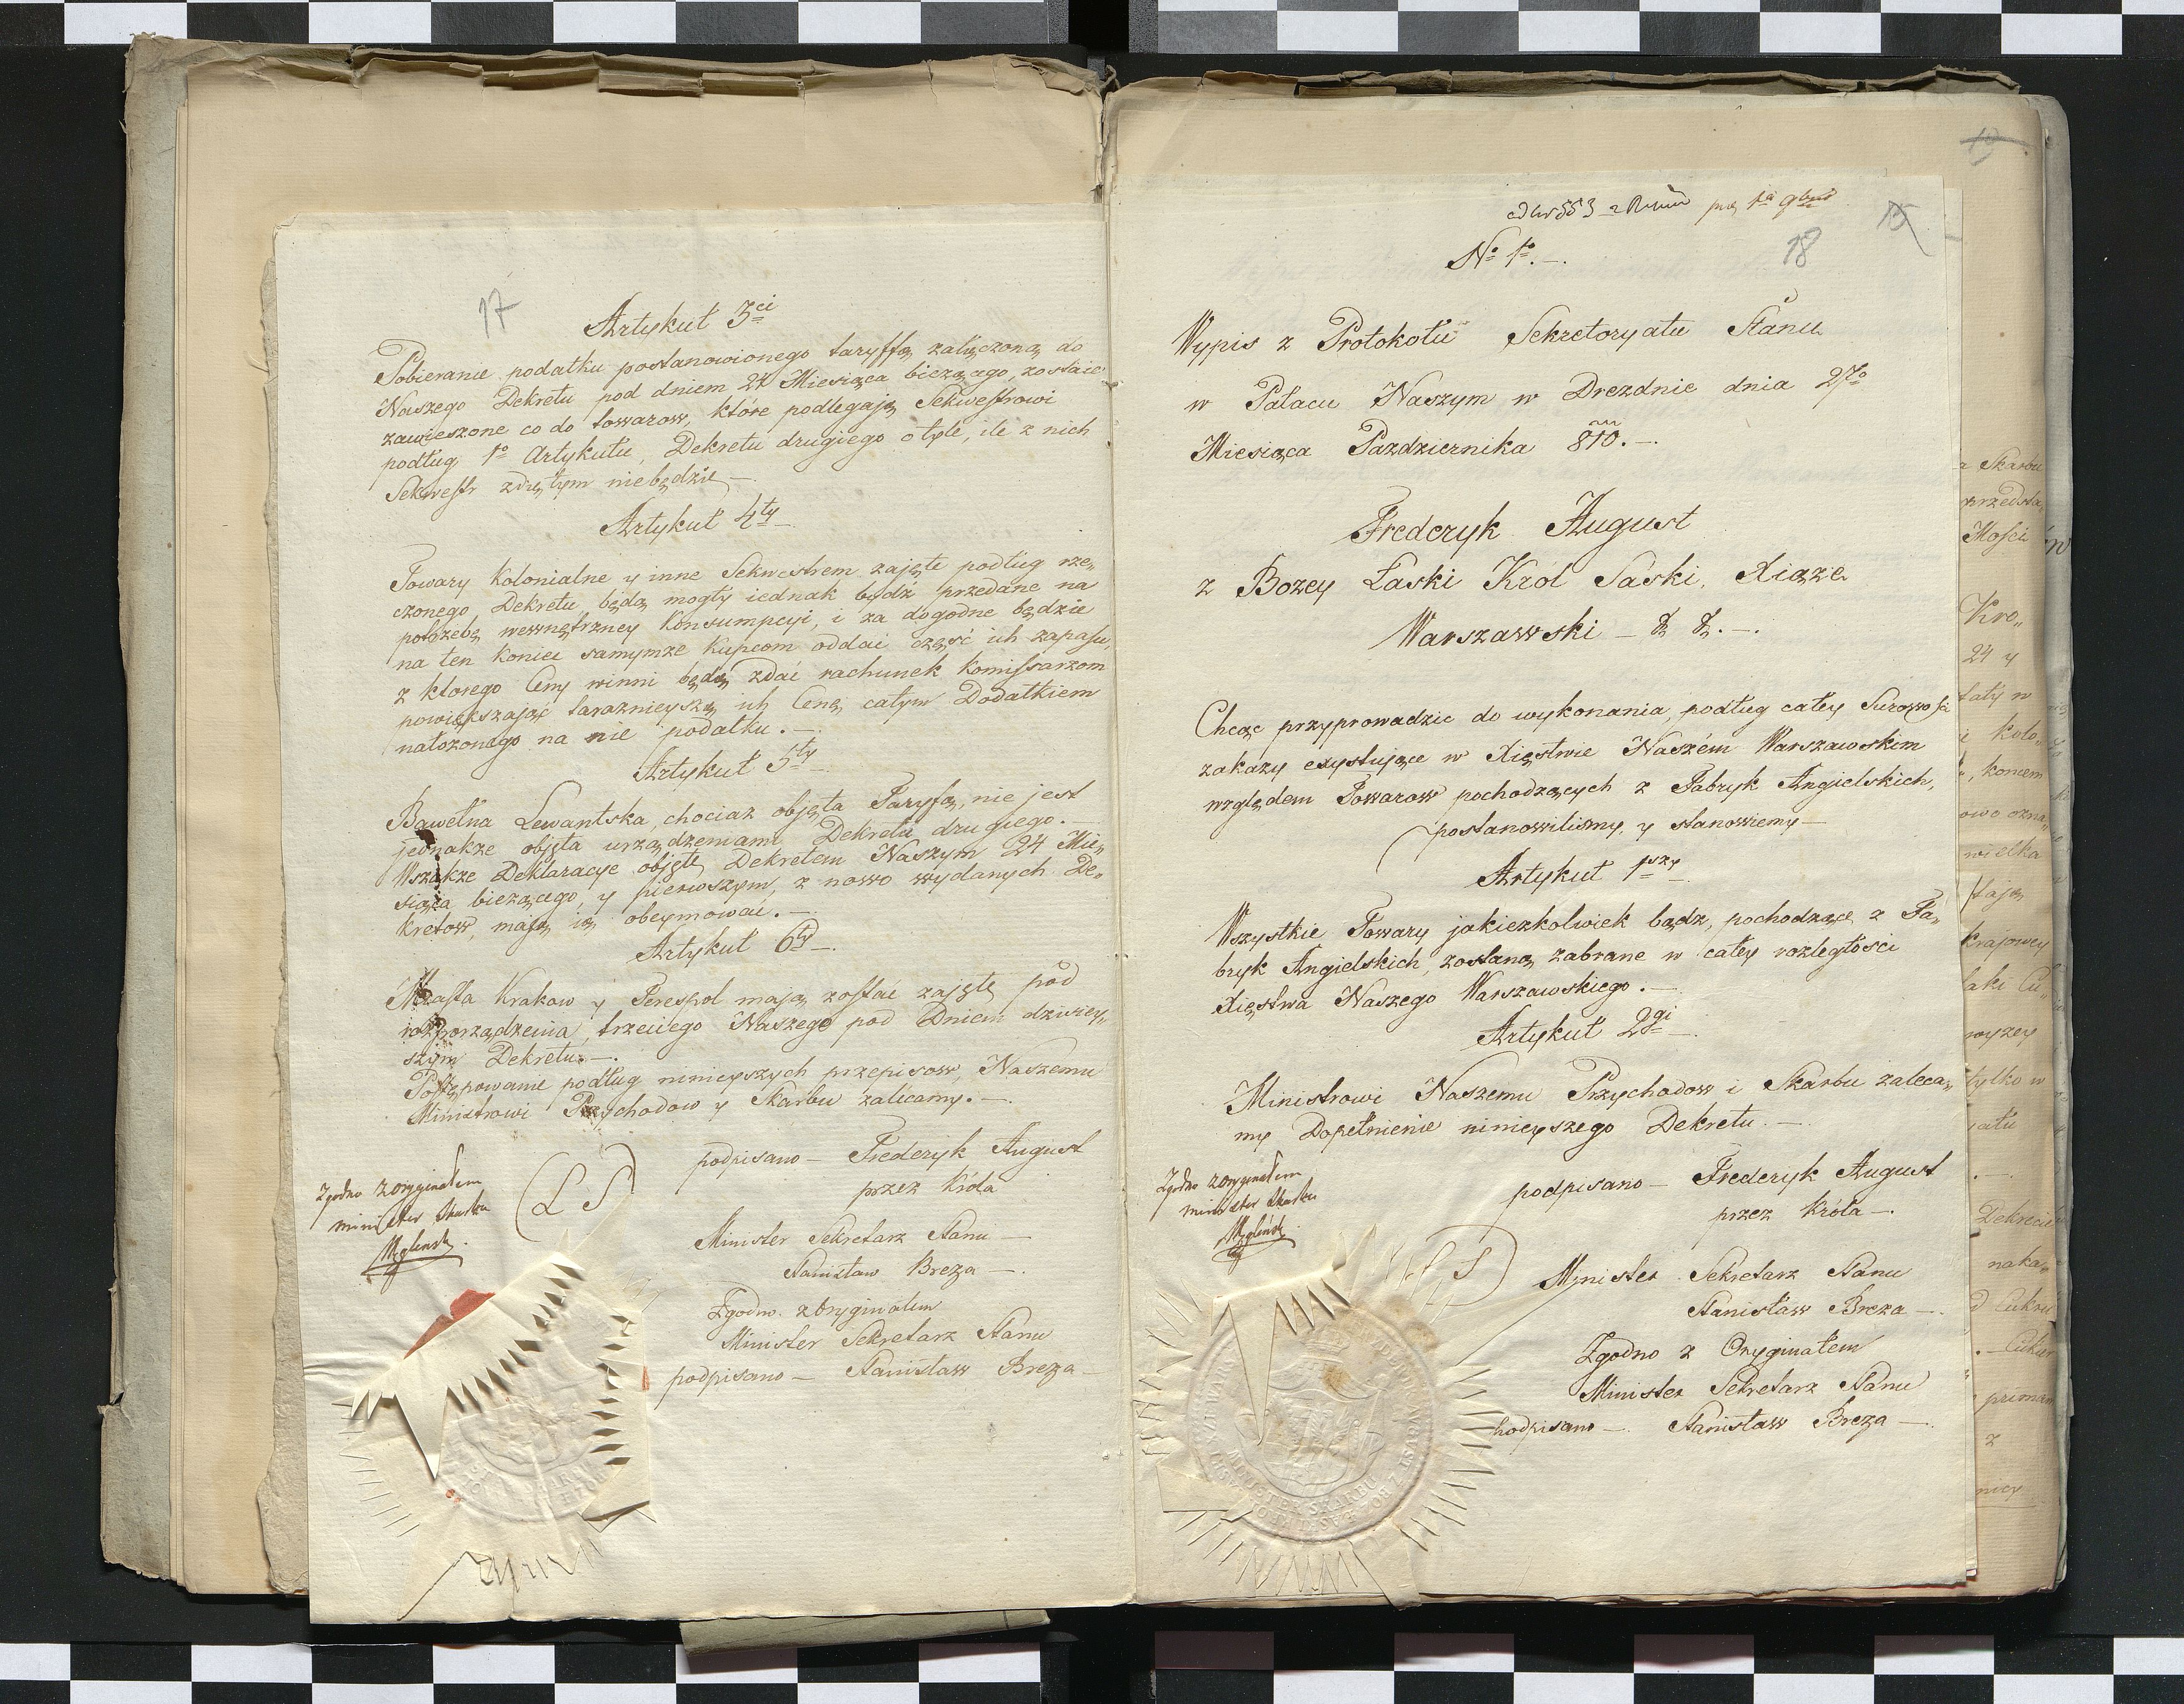 17
Artykuł 3ci
Pobieranie podatku postanowionego taryffą załączoną do
Naszego Dekretu pod dniem 24 Miesiąca bieżącego, zostaie
zawieszone co do towarow, które podlegają Sekwestrowi
podług 1o Artykułu, Dekretu drugiego o tyle, ile z nich
Sekwestr zdiętym niebędzie —
Artykuł 4ty —
Towary Kolonialne y inne Sekwestrem zajęte podług rze„
czonego Dekretu będą mogły iednak bydź przedane na
potrzebę wewnętrzney Konsumpcyi, i za dogodne będzie
na ten koniec samymże Kupcom oddać część ich zapasu,
z ktorego Ceny winni będą zdać rachunek Komissarzom
powiększając taraznieyszą ich Cenę całym Dodatkiem
nałożonego na nie podatku. —
Artykuł 5ty —
Bawełna Lewantska, chociaż objęta Taryfą, nie jest
jednakże objęta urządzeniami Dekretu drugiego. —
Wszakże Deklaracye objęte Dekretem Naszym 24 Mie„
siąca bieżącego, y pierwszym, z nowo wydanych De„
kretow, mają ią obeymować. —
Artykuł 6ty —
Miasta Krakow y Terespol mają zostać zajęte pod
rozporządzenia trzeciego Naszego pod Dniem dzisiey„
szym Dekretu. —
Postępowanie podług ninieyszych przepisow, Naszemu
Ministrowi Przychodow y Skarbu zalicamy. —
podpisano — Frederyk August
przez Króla
(L S)
Zgodno z oryginałem
minister Skarbu
Węgleński
Minister Sekretarz Stanu —
Stanisław Breza —
Zgodno z Oryginałem
Minister Sekretarz Stanu
podpisano — Stanisław Breza —
19
15
18
No 1o. —
Wypis z Protokołu Sekretoryatu Stanu
w Pałacu Naszym w Dreznie dnia 27o
Miesiąca Pazdziernika 810. —
Frederyk August
z Bozey Łaski Król Saski, Xiąże
Warszawski — & &. —
Chcąc przyprowadzic do wykonania, podług całey Surowosci
zakazy exystujące w Xięstwie Naszém Warszawskim
względem Towarow pochodzących z Fabryk Angielskich,
postanowiliśmy y stanowiemy —
Artykuł 1szy
Wszystkie Towary jakiezkolwiek bądz, pochodzące z Fa„
bryk Angielskich, zostaną zabrane w całey rozległości
Xięstwa Naszego Warszawskiego. —
Artykuł 2gi —
Ministrowi Naszemu Przychodow i Skarbu zaleca„
my Dopełnienie ninieyszego Dekretu. —
podpisano — Frederyk August
przez Króla —
(L S)
Zgodno z oryginałem
minister Skarbu
Węgleński
Minister Sekretarz Stanu
Stanisław Breza —
Zgodno z Oryginałem
Minister Sekretarz Stanu
podpisano — Stanisław Breza —
MINISTER SKARBU